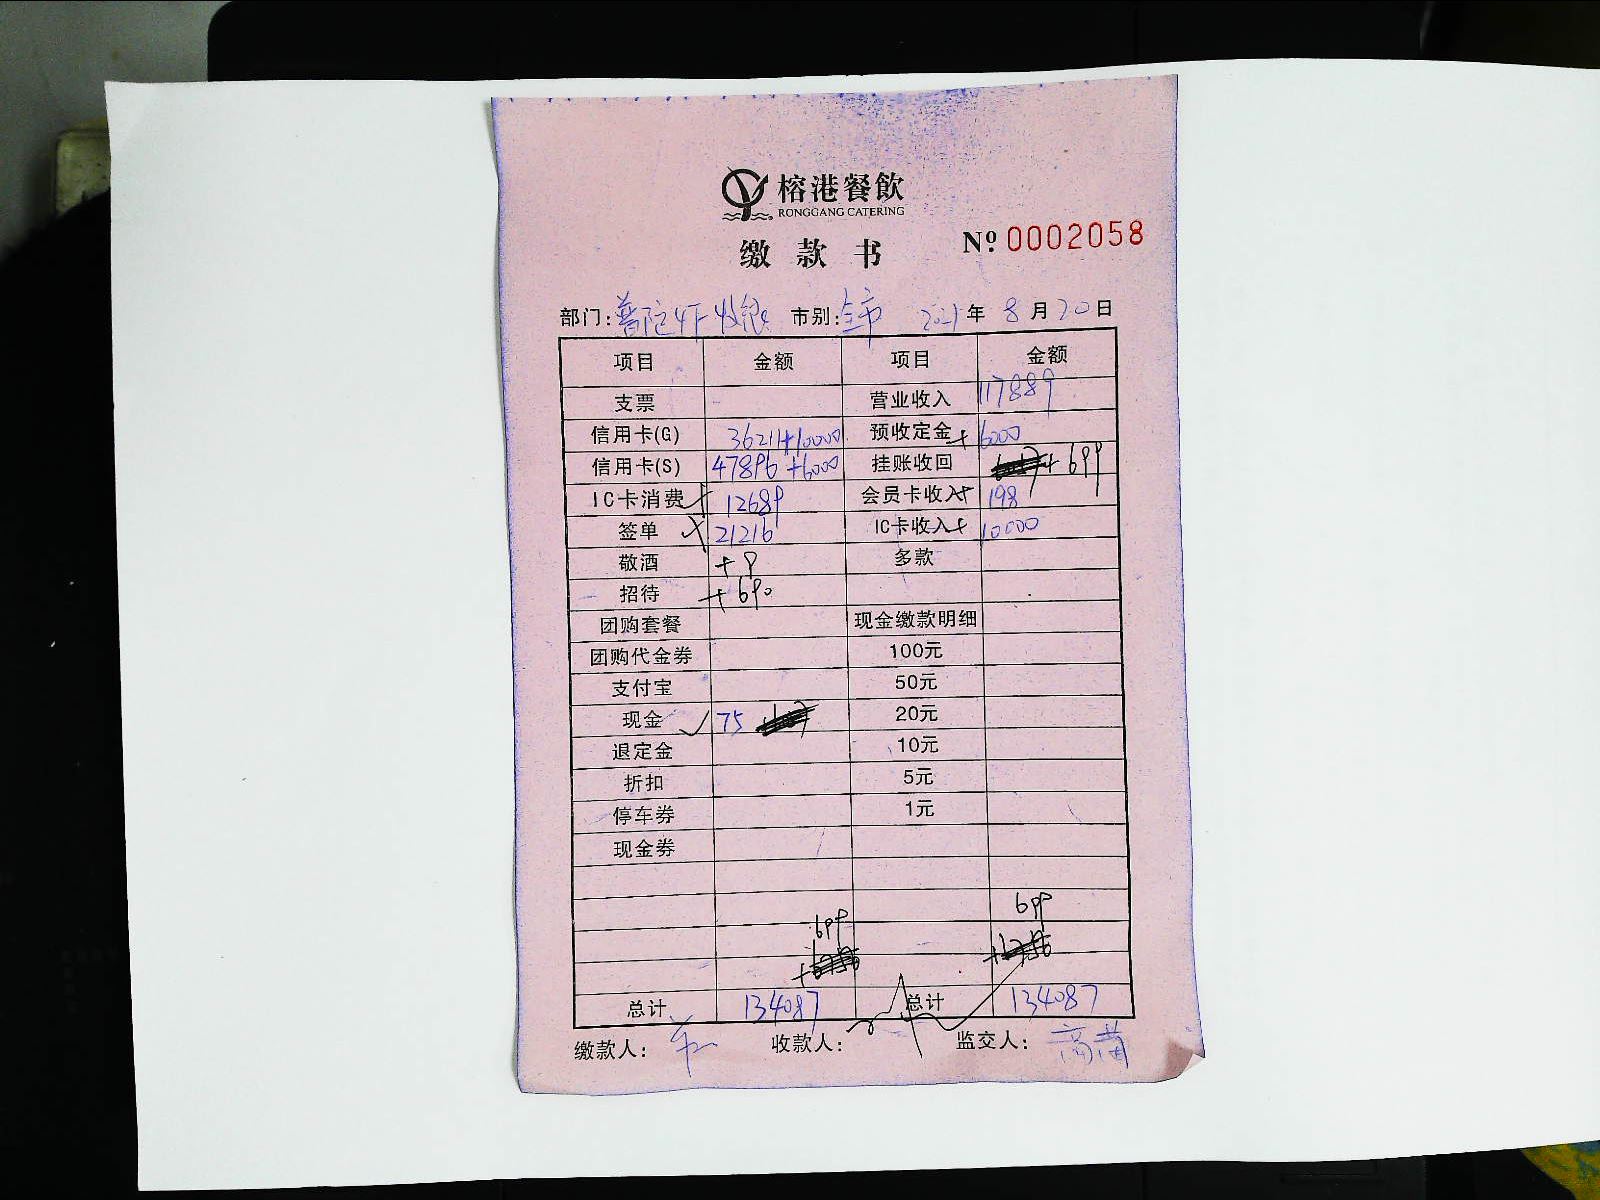 榕港餐飲
RONGGANG CATERING
缴款书
№ 0002058
部门：普陀4F收银 市别：全市 2021年8月20日
项目 金额 项目 金额
支票 营业收入 117889
信用卡(G) 36211+10000 预收定金 + 6000
信用卡(S) 47896+6000 挂账收回 + 699
IC卡消费 12689 会员卡收入+ 198
签单 21216 IC卡收入+ 10000
敬酒 +9 多款
招待 +690
团购套餐 现金缴款明细
团购代金券 100元
支付宝 50元
现金 ✓ 75 20元
退定金 10元
折扣 5元
停车券 1元
现金券
699 699
总计 134087 总计 134087
缴款人： 收款人： 监交人：